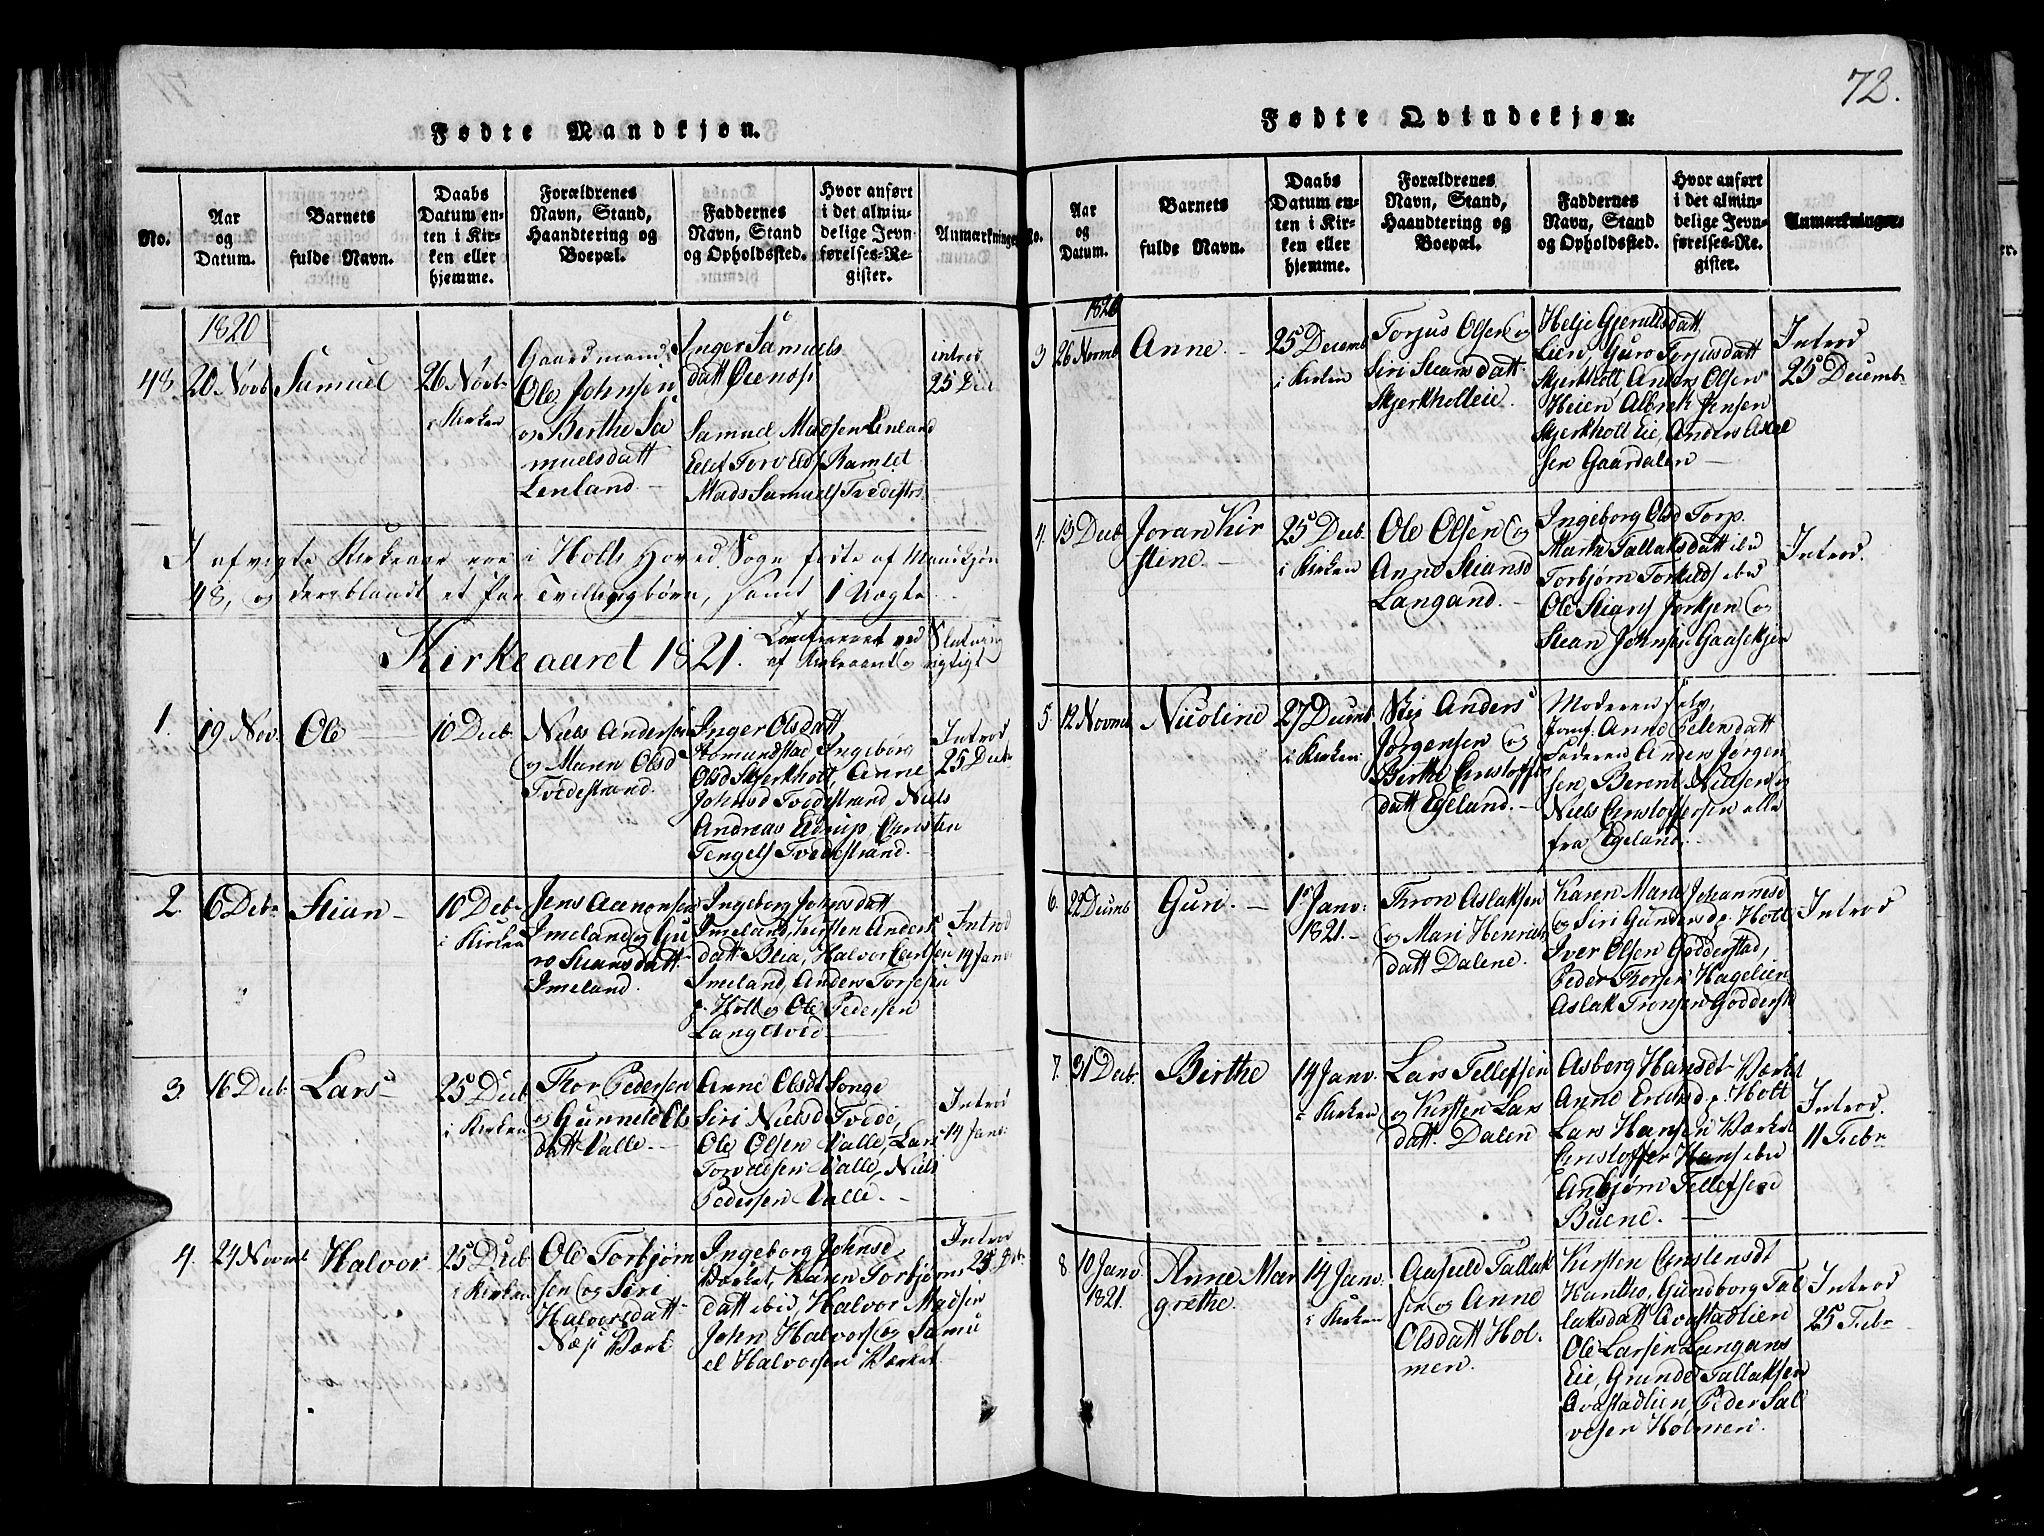 72.
Fødte Mandkjøn.
No.
Aar
og
Datum.
Barnets
fulde Navn.
Daabs
Datum en-
ten i Kir-
ken eller
hjemme.
Forældrenes
Navn, Stand,
Haandtering og
Boepæl.
Faddernes
Navn, Stand
og Opholdssted.
Hvor anført
i det almin-
delige Jevn-
førelses-Re-
gister.
Anmærkninger
1820
48
20 Novb
Samuel
26 Novb
i Kirken
Gaardmand
Ole Johnsen
og Berthe Sa
muelsdatt
Lenland
Inger Samuels
datt
Samuel Madsen Lenland
Mads Samuels Tvedestr.
introd
25 Dec
I afvigte Kirkeaar ere i Holts Hoved Sogn fødte af Mandkjøn
48, og deriblandt et Par Tvillingbørn, samt 1 Uægte.
Kirkeaaret 1821.
1.
19 Nov.
Ole
10 Decb.
Niels Anders
og Maren Olsd
Tvedestrand.
Inger Olsdatt
Ingeborg
Olsd Skjerkholt, Anne
Johnsd Tvedestrand, Niels
Andreas
Tengels Tvedestrand.
Introd
25 Decbr
2.
6 Debr
Stian
10 Debr
i Kirken
Jens Aanonsen
Imeland og Gu
ro Stiansdatt
Imeland.
Ingeborg Johnsdatt
Imeland, Kirsten Anders
datt Blia, Halvor Carlsen
Imeland, Anders
p. Holt og Ole Pedersen
Langtved
Introd
14 Janv
3.
16 Decb.
Lars
25 Decb
i Kirken
Thor Pedersen
og Gunneld Els
datt Valle
Anne Olsdt Songe
Siri Nielsd Tvede,
Ole Olsen Valle, Lars
Torvildsen Valle, Niels
Pedersen Valle.
Introd
14 Janv:
4.
24 Novmb
Halvor
25 Decb
i Kirken
Ole Torbjørn
sen og Siri
Halvorsdatt
Næs Værk
Ingeborg Johnsd
Værket, Karen Torbjørns
datt ibid, Halvor Madsen
John Halvors og Samu
el Halvorsen Værket.
Introd
25 Dbr.
Fødte Qvindekjøn.
No.
Aar
og
Datum.
Barnets
fulde Navn.
Daabs
Datum en-
ten i Kir-
ken eller
hjemme.
Forældrenes
Navn, Stand,
Haandtering og
Boepæl.
Faddernes
Navn, Stand
og Opholdssted.
Hvor anført
i det almin-
delige Jevn-
førelses-Re-
gister.
Anmærkninger
1820
3
26 Novmb
Anne.
25 Decemb
i Kirken
Torjus Olsen og
Siri Stiansdatt
Skjerkholleie.
Helje Gjeruldsdatt
Lien, Guro Torjusdatt
Skjerkholt, Anders Olsen
Heien, Albrek Jensen
Skjerkholt Eie, Anders Aslae
sen Gaardalen
Introd
25 Decemb
4.
13 Decb
Joran Kir
stine.
25 Decb.
i Kirken
Ole Olsen og
Anne Stiansd
Langand.
Ingeborg Olsd Torp
Marthe Tallaksdatt ibid
Torbjørn Torkilds ibid
Ole Stians og
Stian Johnsen Gaasekjer
Introd.
5.
12 Novmb
Nicoline
27 Decmb
i Kirken
Anders
Jørgensen og
Berthe Cristoffers
datt Egeland.
Moderen selv,
Jomf. Anne Pedersdatt
Faderen Anders Jørgen
sen, Berent Nielsen og
Niels Cristoffersen alle
fra Egeland.
6.
22 Decmb
Guri.
1 Janv.
1821.
Thron Aslaksen
og Mari Henrichs
datt Dalene.
Karen Marie Johannesd
og Siri Gundersd p. Holt
Iver Olsen Godderstad,
Peder Thorsen Hagelien
Aslak Tronsen Godderst
Introd
7.
31 Decb.
Birthe
14 Janv.
i Kirken
Lars Tellefsen
og Kirsten Lars
datt. Dalen
Asborg Hansdt Værket
Anne p. Holt
Lars Hansen Værket
Cristoffer Hans ibid
Anbjørn Tellefsen
Buene.
Introd.
11 Febr
8
10 Janv.
1821.
Anne Mar
grethe.
14 Janv.
i Kirken
Aasuld Tallak
sen og Anne
Olsdatt Hol-
men.
Kirsten Cristensdt
Hantho, Gundborg Tal
laksdatt Qvastadlien
Ole Larsen Langans
Eie, Grunde Tallaksen
Qvastadlien, Peder Sal
vesen Holmen.
Introd
25 Febr